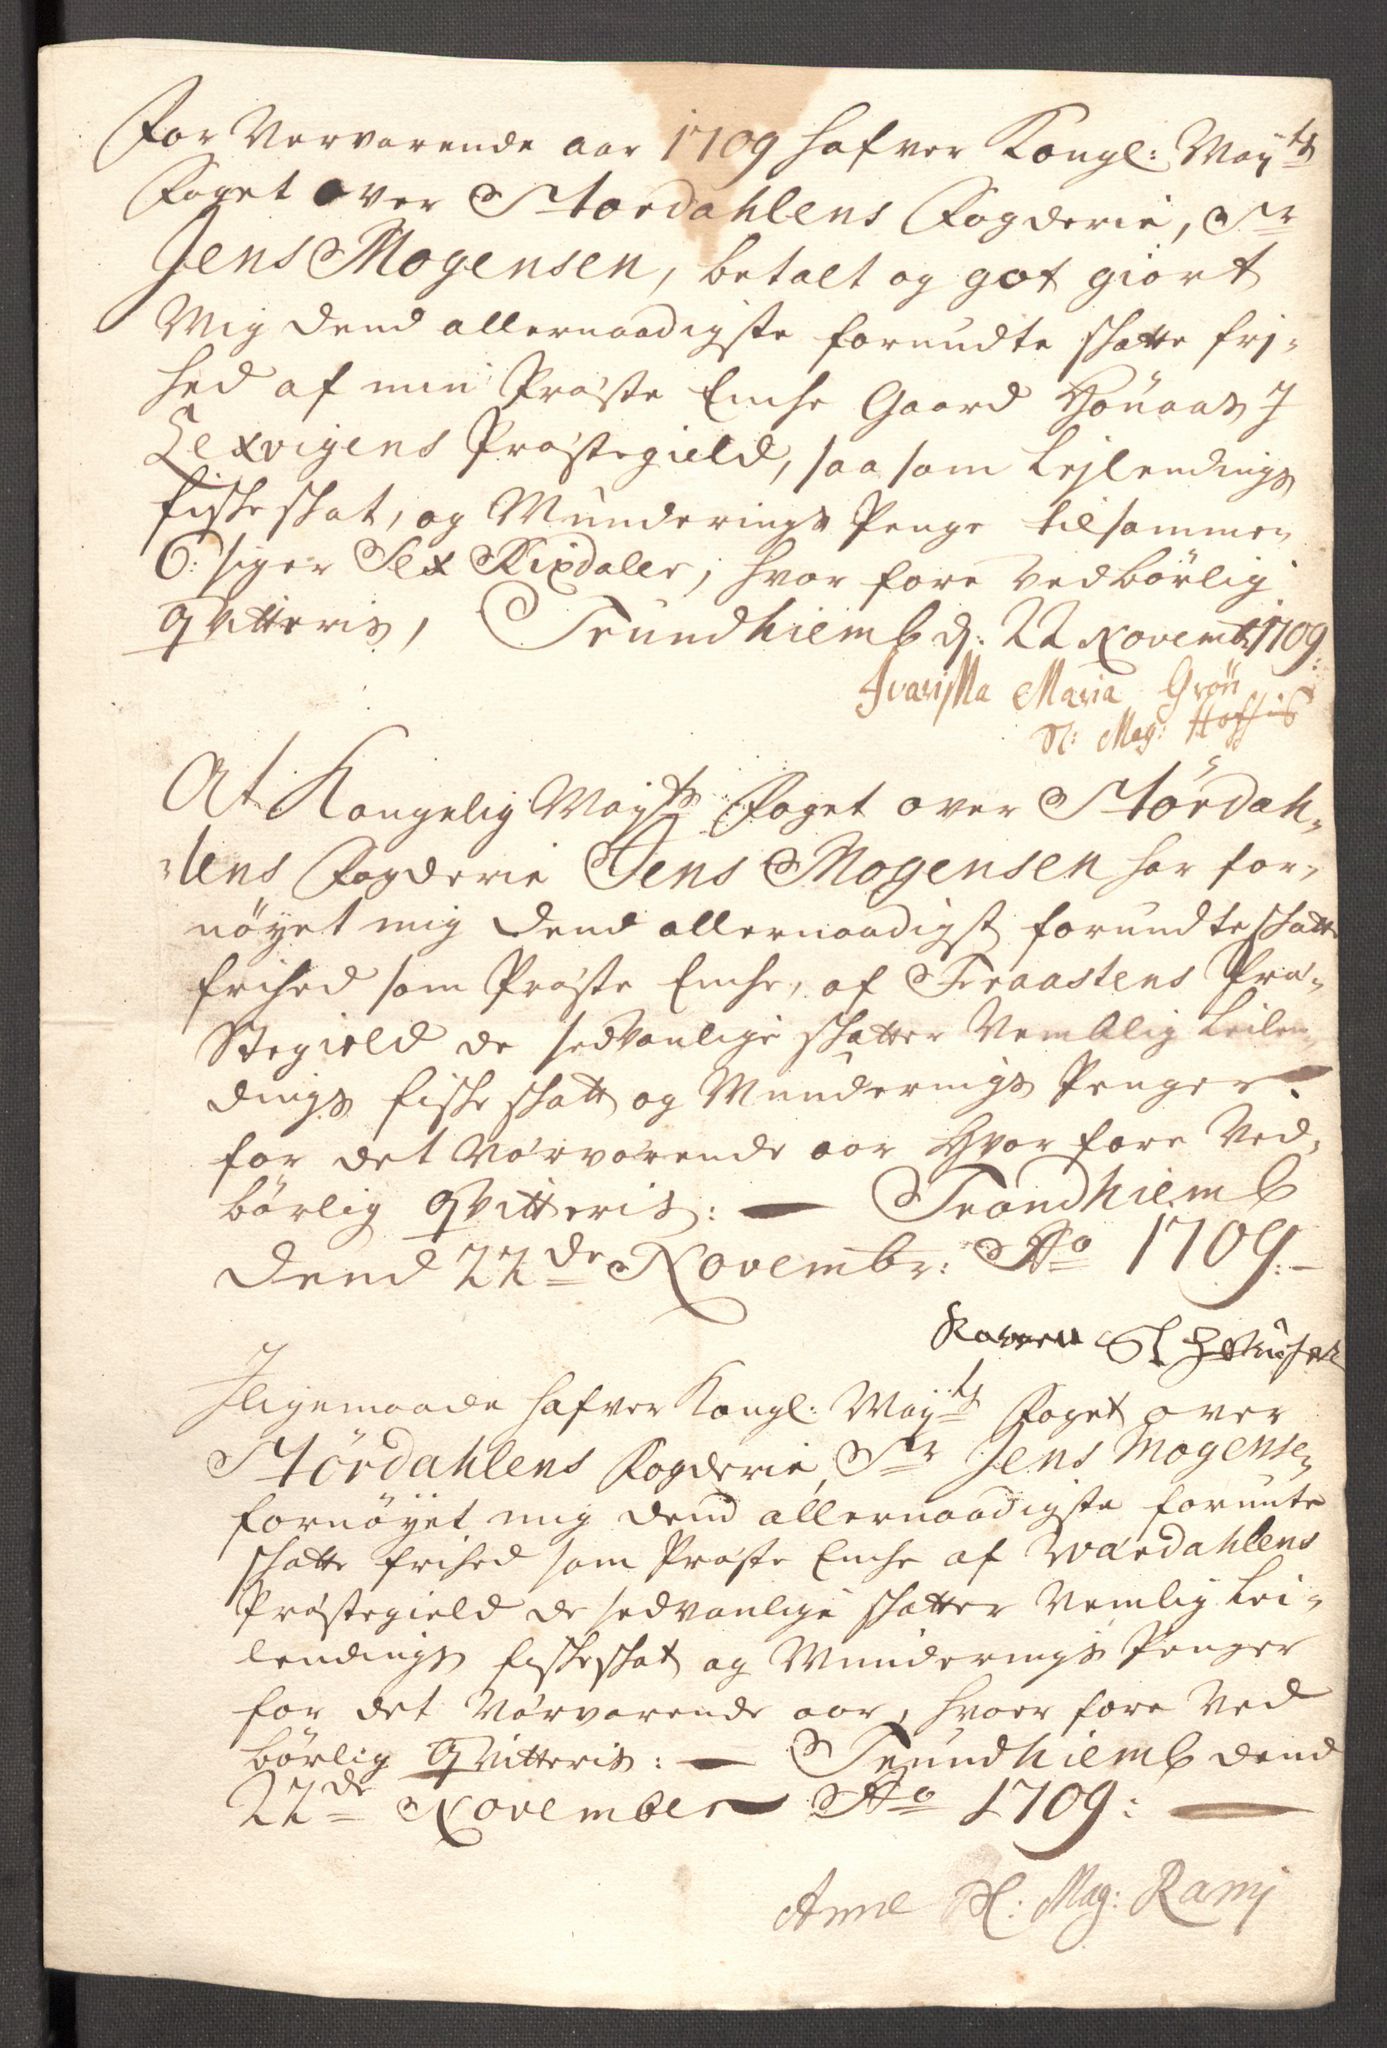 For Nerværende aar 1709 hafver Kongl: Mayts
Foget over Stordahlens Fogderie, Sr
Jens Mogensen, betalt og got giort
Mig dend allernaadigste forundte skatte fri-
hed af min Præste Enche Gaard Hönaas J
Lexvigens Præstegield, saa som Leilendings
fiskeskat, og Munderings Penge tilsammen
6: siger Sex Rixdaler, hvor fore vedbörlig
qvitteris, Trundhiemb d: 22 Novemb: 1709:
Maria Grön
Sl: Mag: Hoffis
At Kongelig Mayts Foget over Stördah-
lens Fogderie Jens Mogensen har for-
nöyet mig dend allernaadigst forundte skatte
frihed som Præste Enche, af Fraastens Præ-
stegield de sedvanlige skatter Nemblig Leilen-
dings fiske skatt og Munderings Penger
for det Nærværende aar Hvor fore Ved-
börlig qvitteris: Trondhiemb
dend 22de Novembr: Ao 1709:
Karren Sl
Jligemaade hafver Kongl: Mayts Foget over
Stördahlens Fogderie, Sr Jens Mogensen
fornöyet mig dend allernaadigste forunte
skatte frihed som Præste Enche af Værdahlens
Præstegield de sedvanlige skatter Nemlig Lei-
lendings fiskeskat og Munderings Penger
for det Nærværende aar, hvor fore Ved
börlig qvitteris: Trundhiemb dend
22de November Ao 1709:
Anne Sl: Mag: Ramj